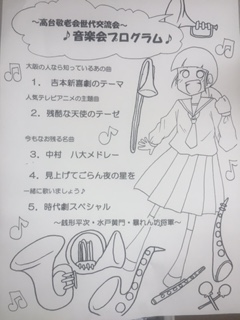 ～高台敬老会世代交流会～
♪音楽会プログラム♪
大阪の人なら知っているあの曲
1、 吉本新喜劇のテーマ
人気テレビアニメの主題曲
2、残酷な天使のテーゼ
今もなお残る名曲
3、中村 八大メドレー
4、見上げてごらん夜の星を
一緒に歌いましょう♪
5、時代劇スペシャル
～銭形平次・水戸黄門・暴れん坊将軍～